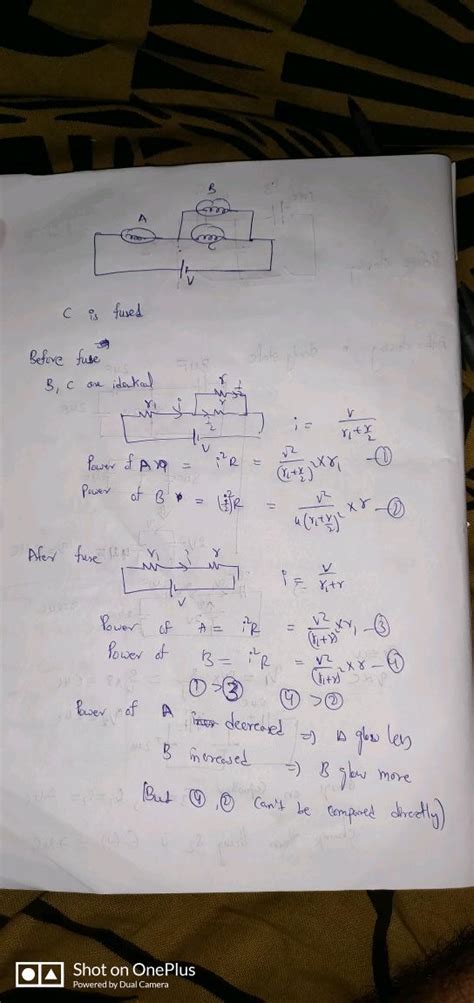 B
A
C
V
C is fused
Before fuse
B, C are identical
r
r₁ i i/2
r
i/2
V
i = V/(r₁+r/2)
Power of A = i²R = V²/(r₁+r/2)² × r₁ —①
Power of B = (i/2)²R = V²/4(r₁+r/2)² × r —②
After fuse
r₁ i r
V
i = V/(r₁+r)
Power of A = i²R = V²/(r₁+r)² × r₁ —③
Power of B = i²R = V²/(r₁+r)² × r —④
① > ③ ④ > ②
Power of A decreased ⇒ A glow less
B increased ⇒ B glow more
(But ④, ② can't be compared directly)
Shot on OnePlus
Powered by Dual Camera